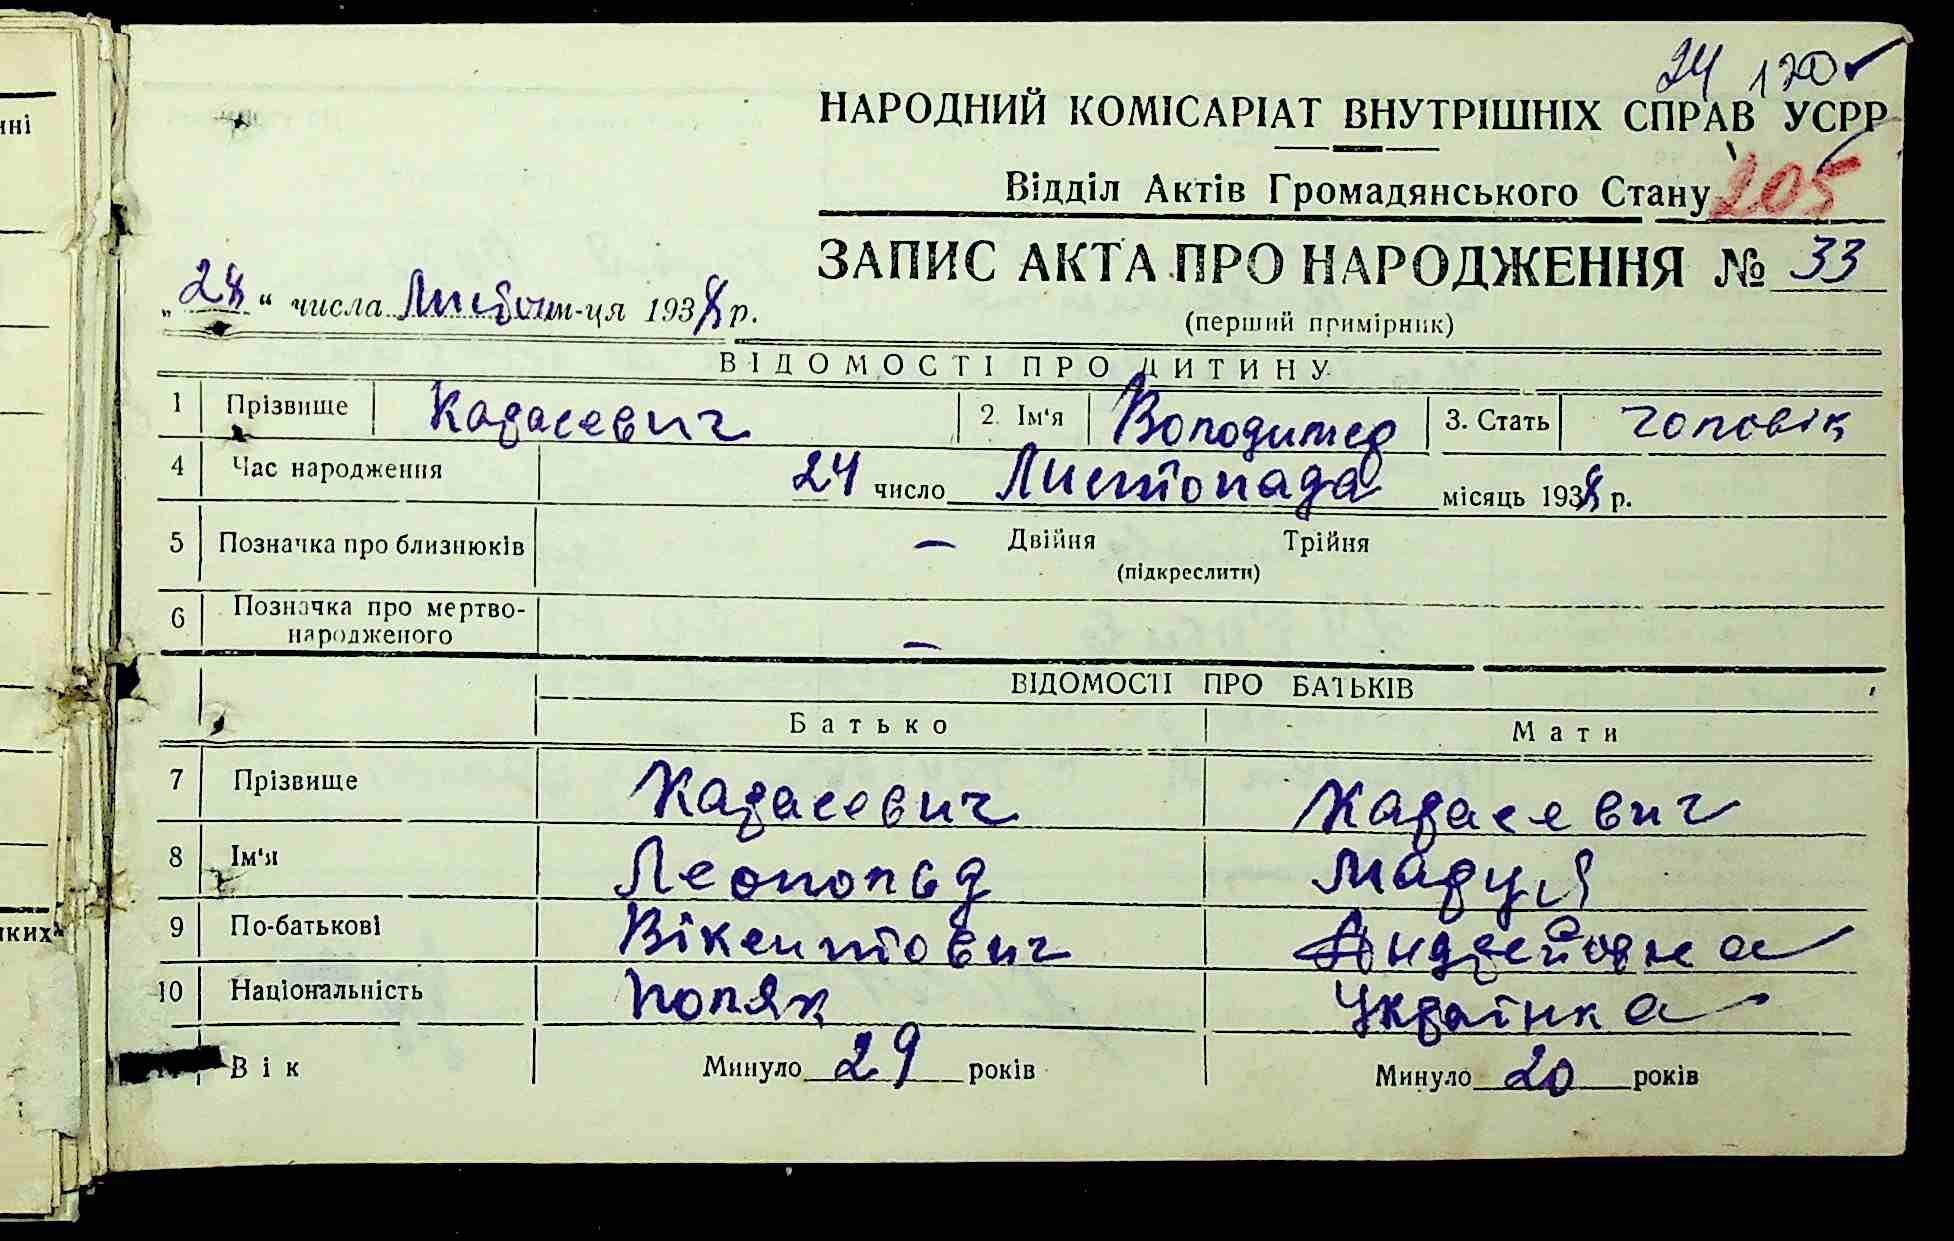 24 120
НАРОДНИЙ КОМІСАРІАТ ВНУТРІШНІХ СПРАВ УСРР
Відділ Актів Громадянського Стану 205
ЗАПИС АКТА ПРО НАРОДЖЕННЯ № 33
„28“ числа Листоп м-ця 1938 р.
(перший примірник)
ВІДОМОСТІ ПРО ДИТИНУ
1 Прізвище Карасевич 2. Ім'я Володимер 3. Стать чоловік
4 Час народження 24 число Листопада місяць 1938 р.
5 Позначка про близнюків — Двійня Трійня
(підкреслити)
6 Позначка про мертво-
народженого —
ВІДОМОСТІ ПРО БАТЬКІВ
Батько Мати
7 Прізвище Карасевич Карасевич
8 Ім'я Леопольд Маруся
9 По-батькові Вікентович Андреївна
10 Національність поляк Українка
Вік Минуло 29 років Минуло 20 років
нні
яких